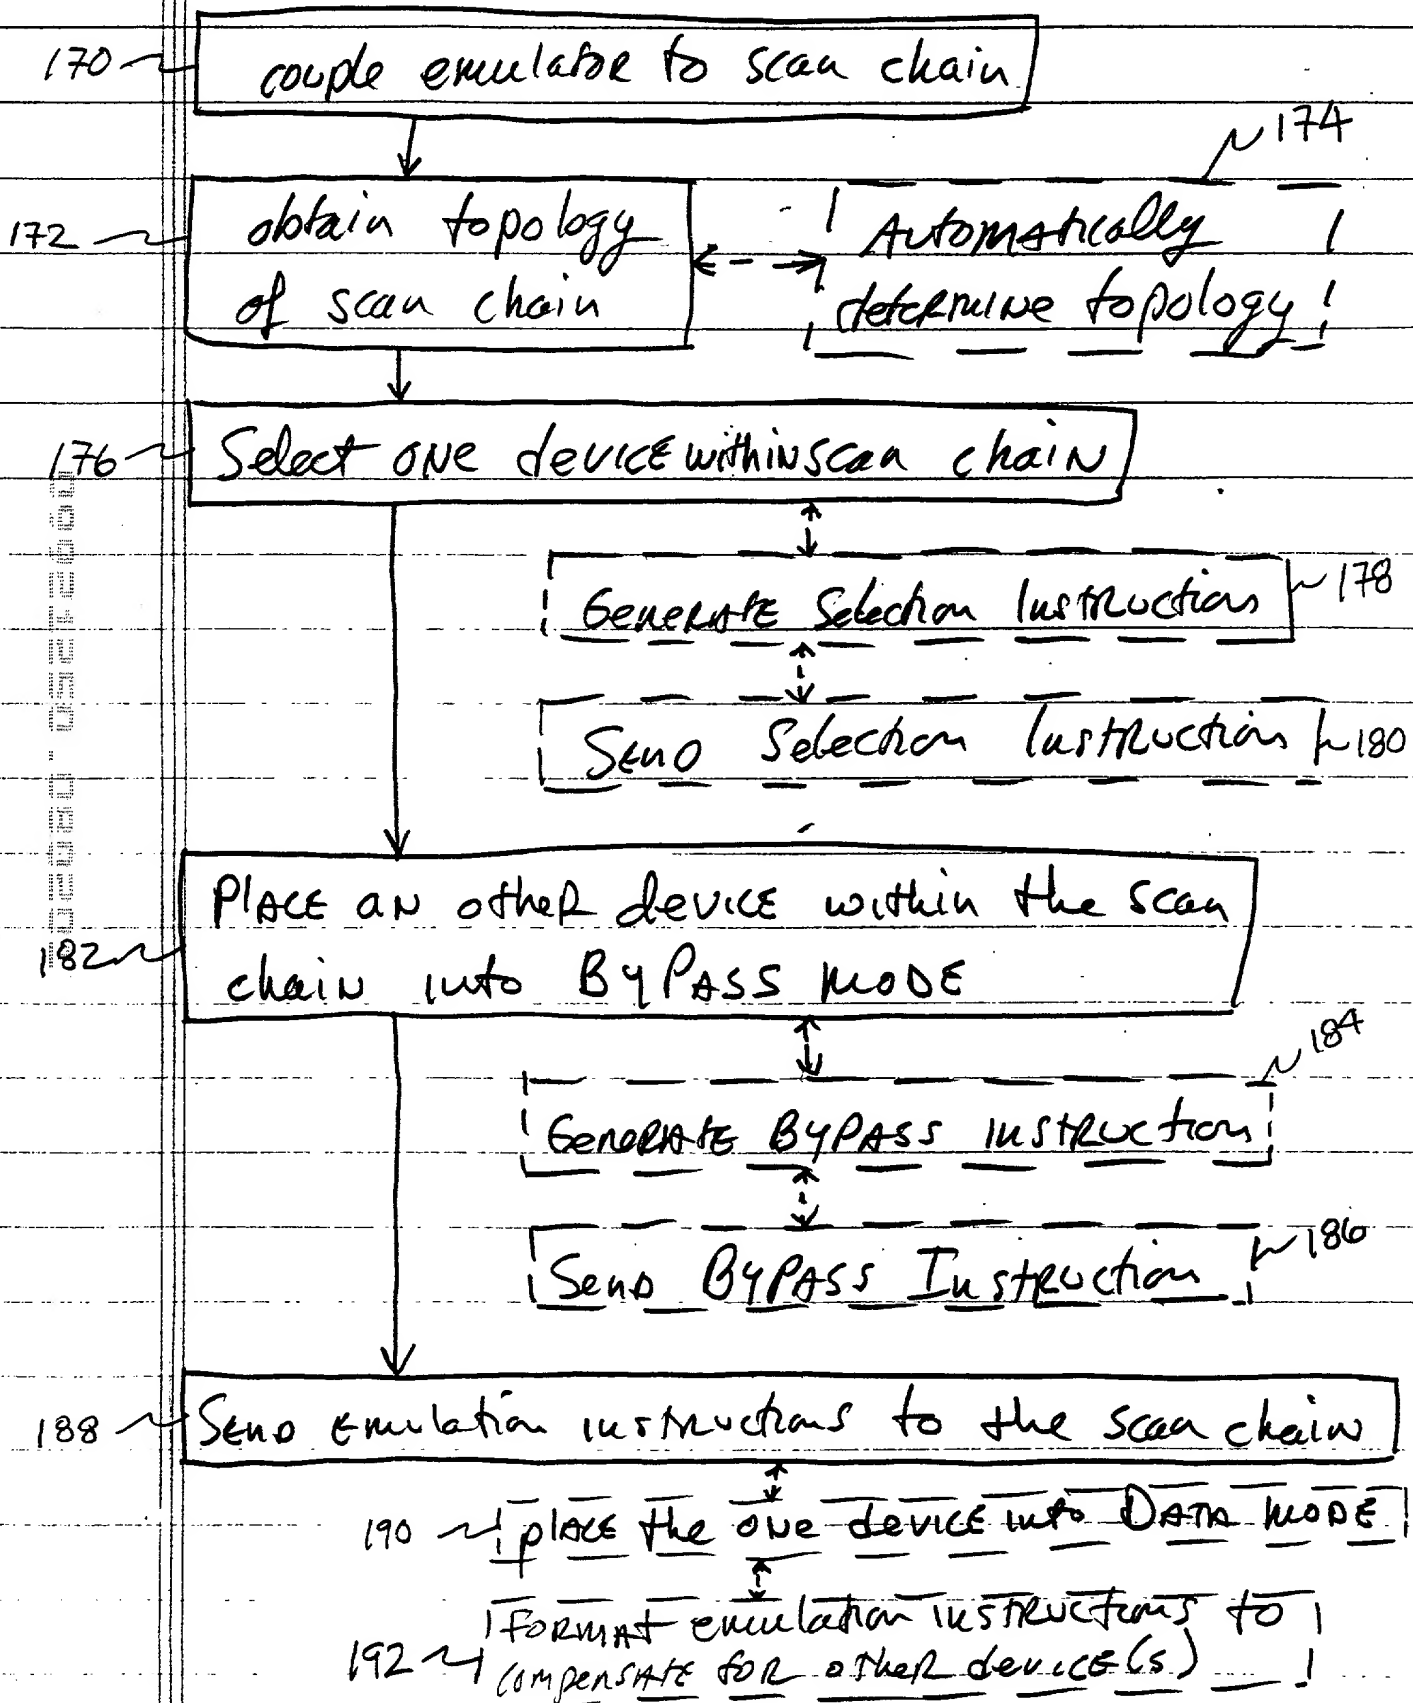 170 couple emulator to scan chain
174
172 obtain topology
of scan chain
Automatically
determine topology
176 Select one device within scan chain
Generate Selection Instruction 178
Send Selection Instruction 180
Place an other device within the scan
182 chain into Bypass mode
184
Generate Bypass instruction
Send Bypass Instruction 186
188 Send emulation instructions to the scan chain
190 place the one device into Data mode
Format emulation instructions to
192 compensate for other device(s)